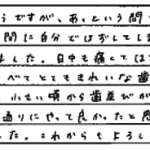 うですが、あっという間
間に自分ではずしてしま
ました。日中も痛くては
べてとてもきれいな歯
小さい頃から歯並びが
通りにやって良かったと思
た。これからもよろし